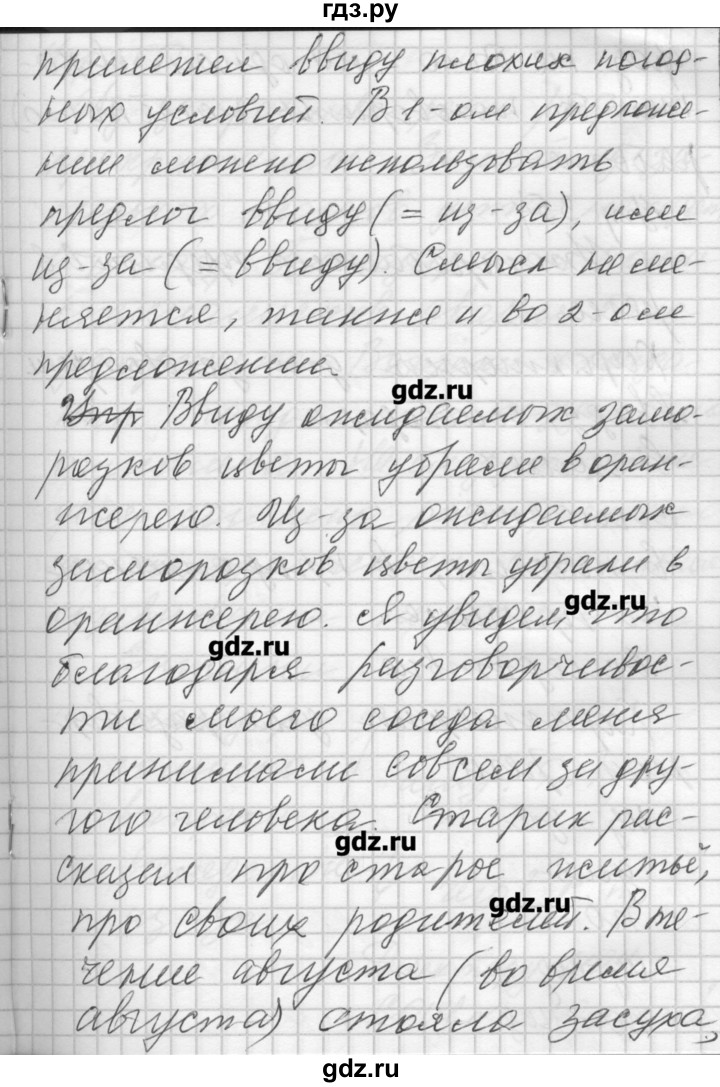 гдз.ру
прилетел ввиду плохих погод-
ных условий. В 1-ом предложе-
нии можно использовать
предлог ввиду (= из-за), или
из-за (= ввиду). Смысл не ме-
няется, также и во 2-ом
предложении.
gdz.ru
Упр Ввиду ожидаемых замо-
розков цветы убрали в оран-
жерею. Из-за ожидаемых
заморозков цветы убрали в
gdz.ru
оранжерею. Я увидел, что
gdz.ru
благодаря разговорчивос-
ти моего соседа меня
принимали совсем за дру-
гого человека. Старик рас-
gdz.ru
сказал про старое житьё,
gdz.ru
про своих родителей. В те-
чение августа (во время
августа) стояла засуха,
gdz.ru